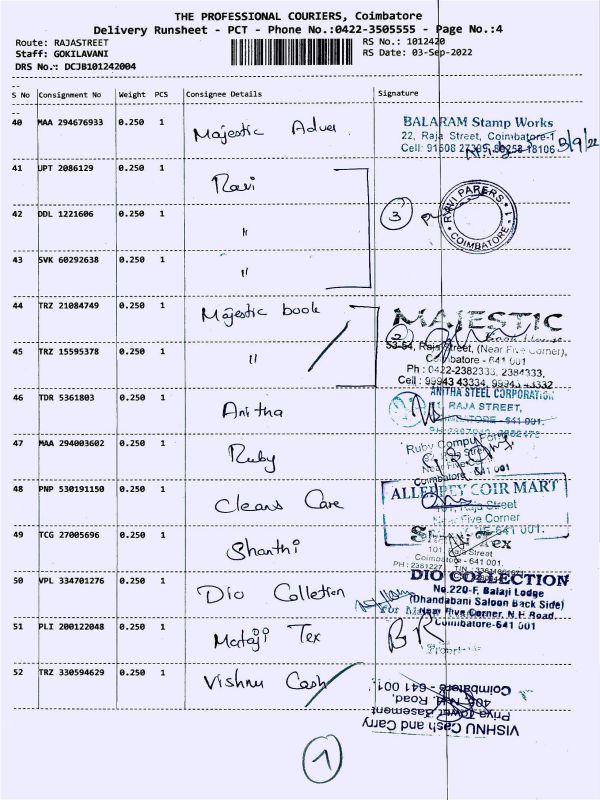 THE PROFESSIONAL COURIERS, Coimbatore
Delivery Runsheet - PCT - Phone No.:0422-3505555 - Page No.:4
Route: RAJASTREET
RS No.: 1012420
Staff: GOKILAVANI
RS Date: 03-Sep-2022
DRS No.: DCJB101242004
S No Consignment No Weight PCS Consignee Details Signature
40 MAA 294676933 0.250 1 Majestic Adver
BALARAM Stamp Works
22, Raja Street, Coimbatore-1
3/9/22
41 UPT 2086129 0.250 1 Ravi
42 DDL 1221606 0.250 1 "
3
RAVI PAPERS
COIMBATORE - 1
43 SVK 60292638 0.250 1 "
44 TRZ 21084749 0.250 1 Majestic book
MAJESTIC
2
53-54, Raja Street, (Near Five Corner),
Coimbatore - 641 001
Ph : 0422-2382333, 2384333,
45 TRZ 15595378 0.250 1 "
Cell : 99943 43334,
46 TDR 5361803 0.250 1 Anitha
ANITHA STEEL CORPORATION
RAJA STREET,
COIMBATORE - 641 001.
47 MAA 294003602 0.250 1 Ruby
Ruby
Near Five
Coimbatore 641 001
48 PNP 530191150 0.250 1 Cleans Care
ALLEPPEY COIR MART
101, Raja Street
Near Five Corner
641 001.
49 TCG 27005696 0.250 1 Shanthi
Tex
101, Raja Street
Coimbatore - 641 001.
50 VPL 334701276 0.250 1 Dio Colletion
DIO COLLECTION
No.220-F, Balaji Lodge
(Dhandabani Saloon Back Side)
Near Five Corner, N.H Road,
Coimbatore-641 001
51 PLI 200122048 0.250 1 Mataji Tex
BR
52 TRZ 330594629 0.250 1 Vishnu Cash
VISHNU Cash and Carry
Priya Tower Basement
Road,
Coimbatore - 641 001.
1